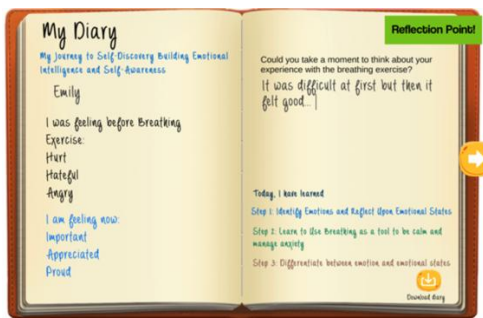 My Diary
My Journey to Self-Discovery Building Emotional
Intelligence and Self-Awareness
Emily
I was feeling before Breathing
Exercise:
Hurt
Hateful
Angry
I am feeling now:
Important
Appreciated
Proud
Reflection Point!
Could you take a moment to think about your
experience with the breathing exercise?
It was difficult at first but then it
felt good...
Today, I have learned
Step 1: Identify Emotions and Reflect Upon Emotional States
Step 2: Learn to Use Breathing as a tool to be calm and
manage anxiety
Step 3: Differentiate between emotion and emotional states
Download diary